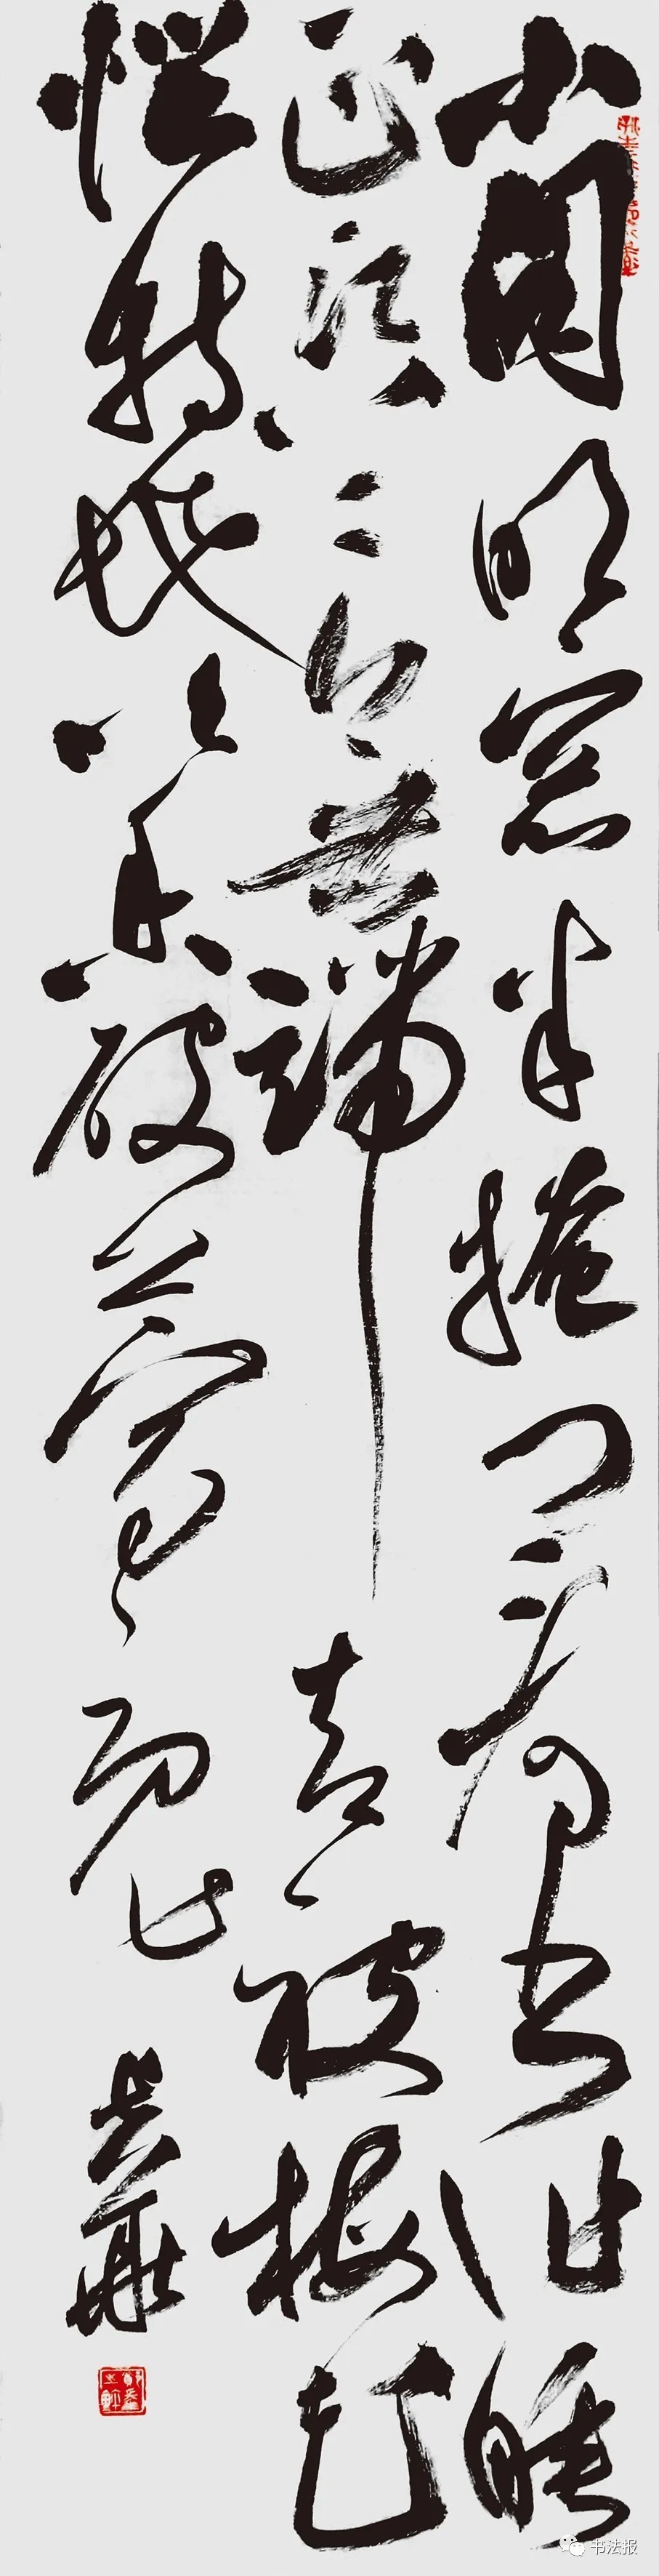 小阁明窗半掩门看书作睡
正無端却被梅花
恼特地吹香破夢魂
书法报